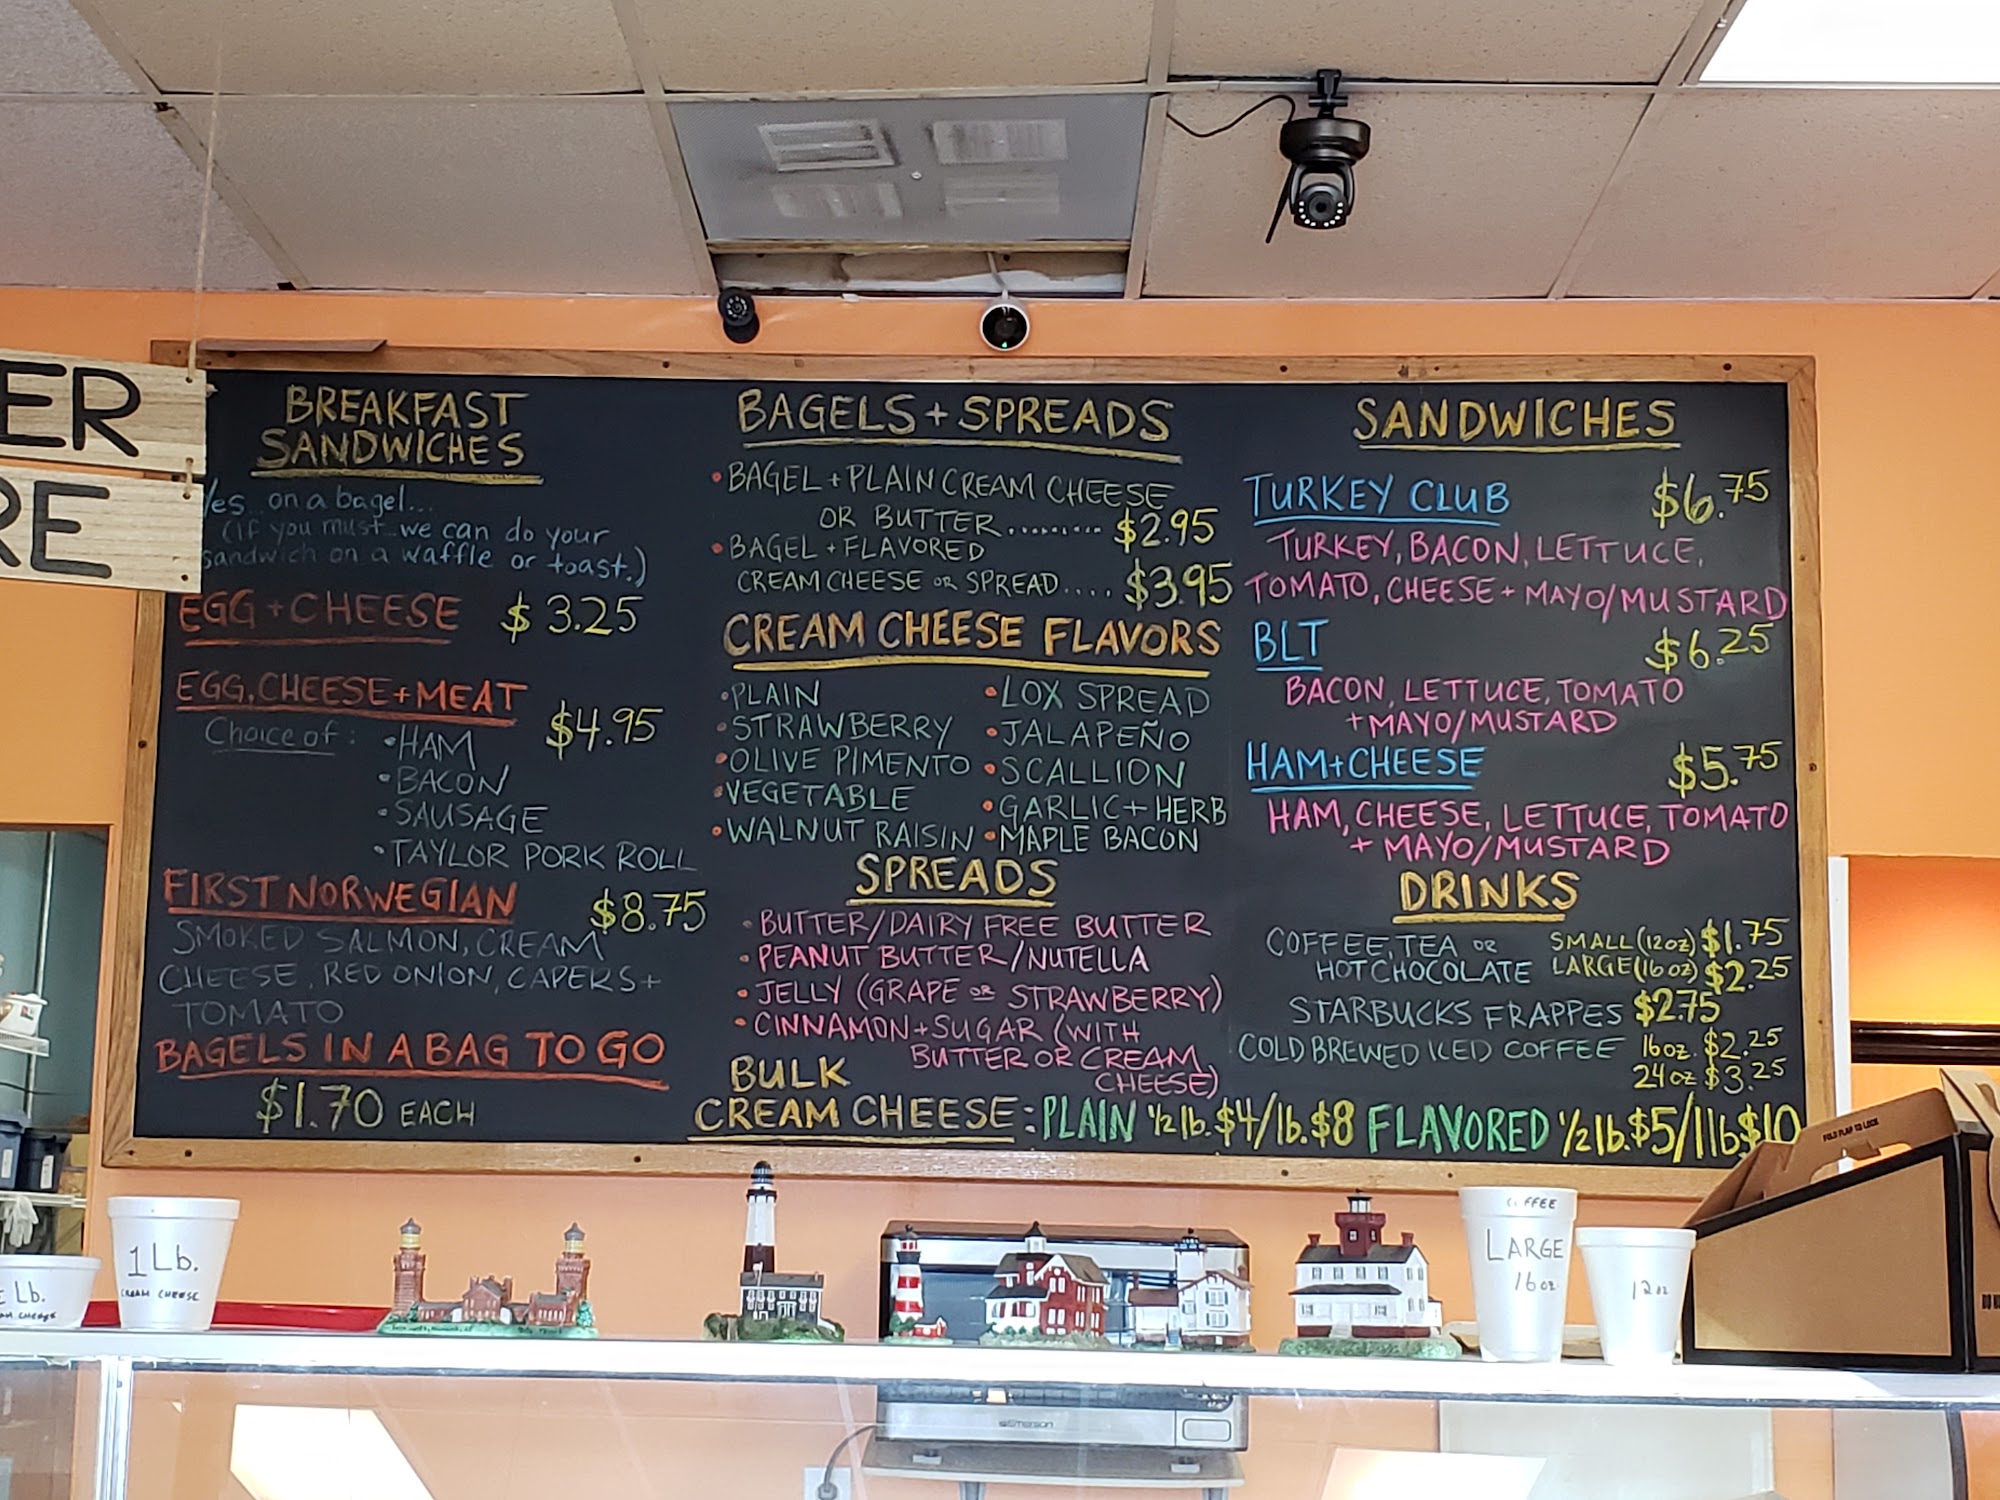 ER
RE
BREAKFAST
SANDWICHES
Yes...on a bagel...
(If you must...we can do your
sandwich on a waffle or toast.)
EGG + CHEESE $3.25
EGG, CHEESE + MEAT
$4.95
Choice of:
• HAM
• BACON
• SAUSAGE
• TAYLOR PORK ROLL
FIRST NORWEGIAN
$8.75
SMOKED SALMON, CREAM
CHEESE, RED ONION, CAPERS +
TOMATO
BAGELS IN A BAG TO GO
$1.70 EACH
BAGELS + SPREADS
• BAGEL + PLAIN CREAM CHEESE
OR BUTTER.......... $2.95
• BAGEL + FLAVORED
CREAM CHEESE OR SPREAD.... $3.95
CREAM CHEESE FLAVORS
• PLAIN
• STRAWBERRY
• OLIVE PIMENTO
• VEGETABLE
• WALNUT RAISIN
• LOX SPREAD
• JALAPEÑO
• SCALLION
• GARLIC + HERB
• MAPLE BACON
SPREADS
• BUTTER/DAIRY FREE BUTTER
• PEANUT BUTTER/NUTELLA
• JELLY (GRAPE OR STRAWBERRY)
• CINNAMON + SUGAR (WITH
BUTTER OR CREAM
CHEESE)
BULK
CREAM CHEESE: PLAIN 1/2 lb. $4/lb. $8 FLAVORED 1/2 lb. $5/1 lb $10
SANDWICHES
TURKEY CLUB $6.75
TURKEY, BACON, LETTUCE,
TOMATO, CHEESE + MAYO/MUSTARD
BLT $6.25
BACON, LETTUCE, TOMATO
+ MAYO/MUSTARD
HAM + CHEESE $5.75
HAM, CHEESE, LETTUCE, TOMATO
+ MAYO/MUSTARD
DRINKS
COFFEE, TEA OR SMALL (12oz) $1.75
HOT CHOCOLATE LARGE (16oz) $2.25
STARBUCKS FRAPPES $2.75
COLD BREWED ICED COFFEE 16oz. $2.25
24oz $3.25
Lb.
CHEESE
1 Lb.
CREAM CHEESE
COFFEE
LARGE
16oz.
12oz
FOLD FLAP TO LOCK
EMERSON